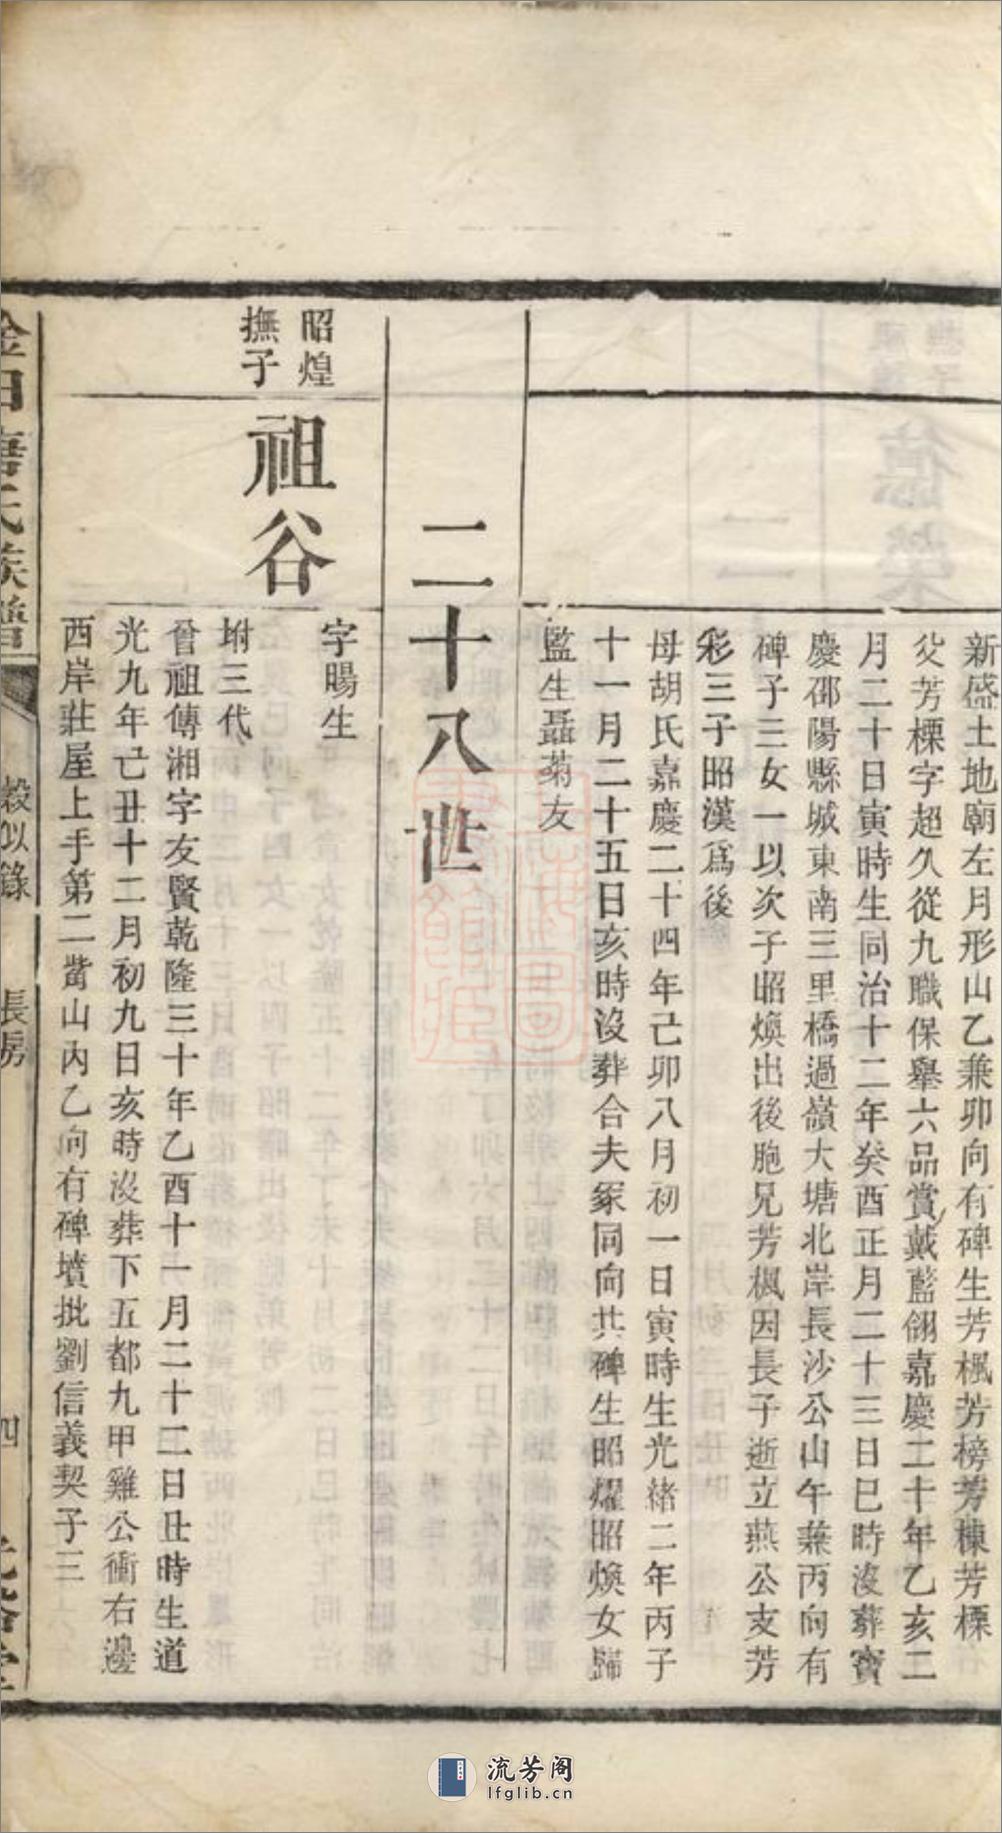 新盛土地廟左月形山乙兼卯向有碑生芳楓芳榜芳棟芳標
父芳標字超久從九職保舉六品賞戴藍翎嘉慶二十年乙亥二
月二十日寅時生同治十二年癸酉正月二十三日巳時沒葬寶
慶邵陽縣城東南三里橋過嶺大塘北岸長沙公山午兼丙向有
碑子三女一以次子昭煥出後胞兄芳楓因長子逝立燕公支芳
彩三子昭漢爲後
母胡氏嘉慶二十四年己卯八月初一日寅時生光緒二年丙子
十一月二十五日亥時沒葬合夫冢同向共碑生昭燿昭煥女歸
監生聶菊友
二十八世
昭煌
撫子
祖谷
字暘生
坿三代
曾祖傳湘字友賢乾隆三十年乙酉十一月二十二日丑時生道
光九年己丑十二月初九日亥時沒葬下五都九甲雞公衝右邊
西岸莊屋上手第二嵙山內乙向有碑墳批劉信義契子三
金田唐氏族譜
穀似錄
長房
四